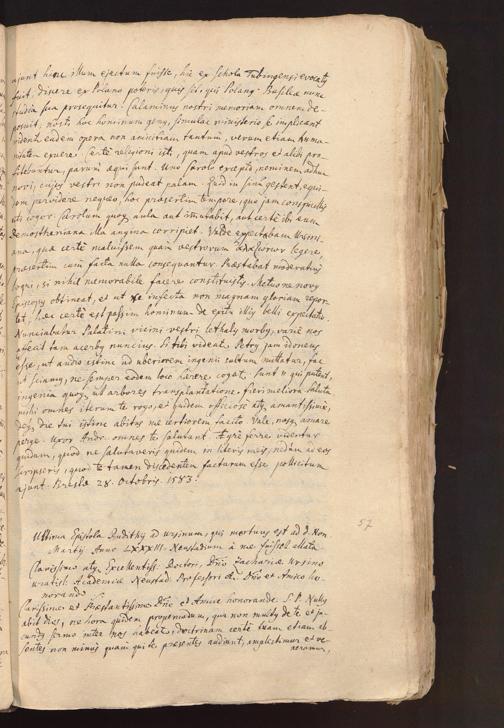 ajunt hinc illum ejectum fuisse, hic ex Schola Tubingensi evocatus
fuit, divere ex Polano poteris, quis sit, qui Polanus Basileæ nunc
studia sua prosequitur. Calaminus nostri memoriam omnem de-
posuit, nosti hoc hominum genus, simulac ministerio se implicant
eadem opera non amicitiam tantum, verum etiam huma-
nitatem exuere. Certè religioni isti, quam apud vestros et alibi pro-
fitebuntur, parum æqui sunt. Uno Carolo excepto, neminem adhuc
novi, cujus vestri non pudeat palam. Quid in sinu gestent, equi-
dem pervidere nequeo, hoc præsertim tempore, quo jam
uti cogor. Carolum quoque, aula aut immutabit, aut certè ibi eum
Demostheniana illa angina corripiet. Valde expectabam Ursini-
ana, quæ certè maluissem quam vestrorum legere
præsertim cum facta nulla consequantur. Præstabat moderatius
loqui, si nihil memorabile facere constituistis. Metuo ne novus
Episcopus obtineat, et ut re infecta non magnam gloriam repor-
tet, hæc certè est passim hominum de exitu illius belli expectatio.
Nunciabatur Palatini vicini vestri lethalis morbus, variè nos
affecit tam acerbus nuncius. Si tibi videat Petrus jam idoneus
esse, ut audio istinc ad uberiorem ingenii cultum mittatur, fac
ut sciamus, ne semper eodem loco hærere cogat. Sunt n. qui putent,
ingenia quoque, ut arbores transplantatione, fieri meliora. Saluta
mihi omnes iterum te rogo, et quidem officiosè atque amantissimè,
deque die tui istinc abitus me certiorem facito. Vale, nosque amare
perge. Uxor Andr. omnes te salutant. Ægrè ferre videntur
quidam, quod ne salutaveris quidem in literis meis, nedum ad eos
scripseris, quod te tamen discedentem facturum esse pollicitum
ajunt. Breslæ 28. Octobris. 1583.
Ultima Epistola Dudithij ad Ursinum, qui mortuus est ad d. Non.
Martij Anno LXXXIII. Neustadium à me fuisset allata.
Clarissimo atque Excellentiss. Doctori, Dño Zachariæ Ursino
Uratisl. Academiæ Neustad. Professori &. Dño et Amico ho-
norando.
Clarissime et Præstantissime Dñe et Amice honorande. S. P. Nullus
abit dies, ne hora quidem propemodum, qua non multus de te et ju-
cundus sermo inter nos habeat, doctrinam certè tuam etiam ab-
sentes non minus quam qui te præsentes audiunt, amplectimur et ve-
neramur,
57